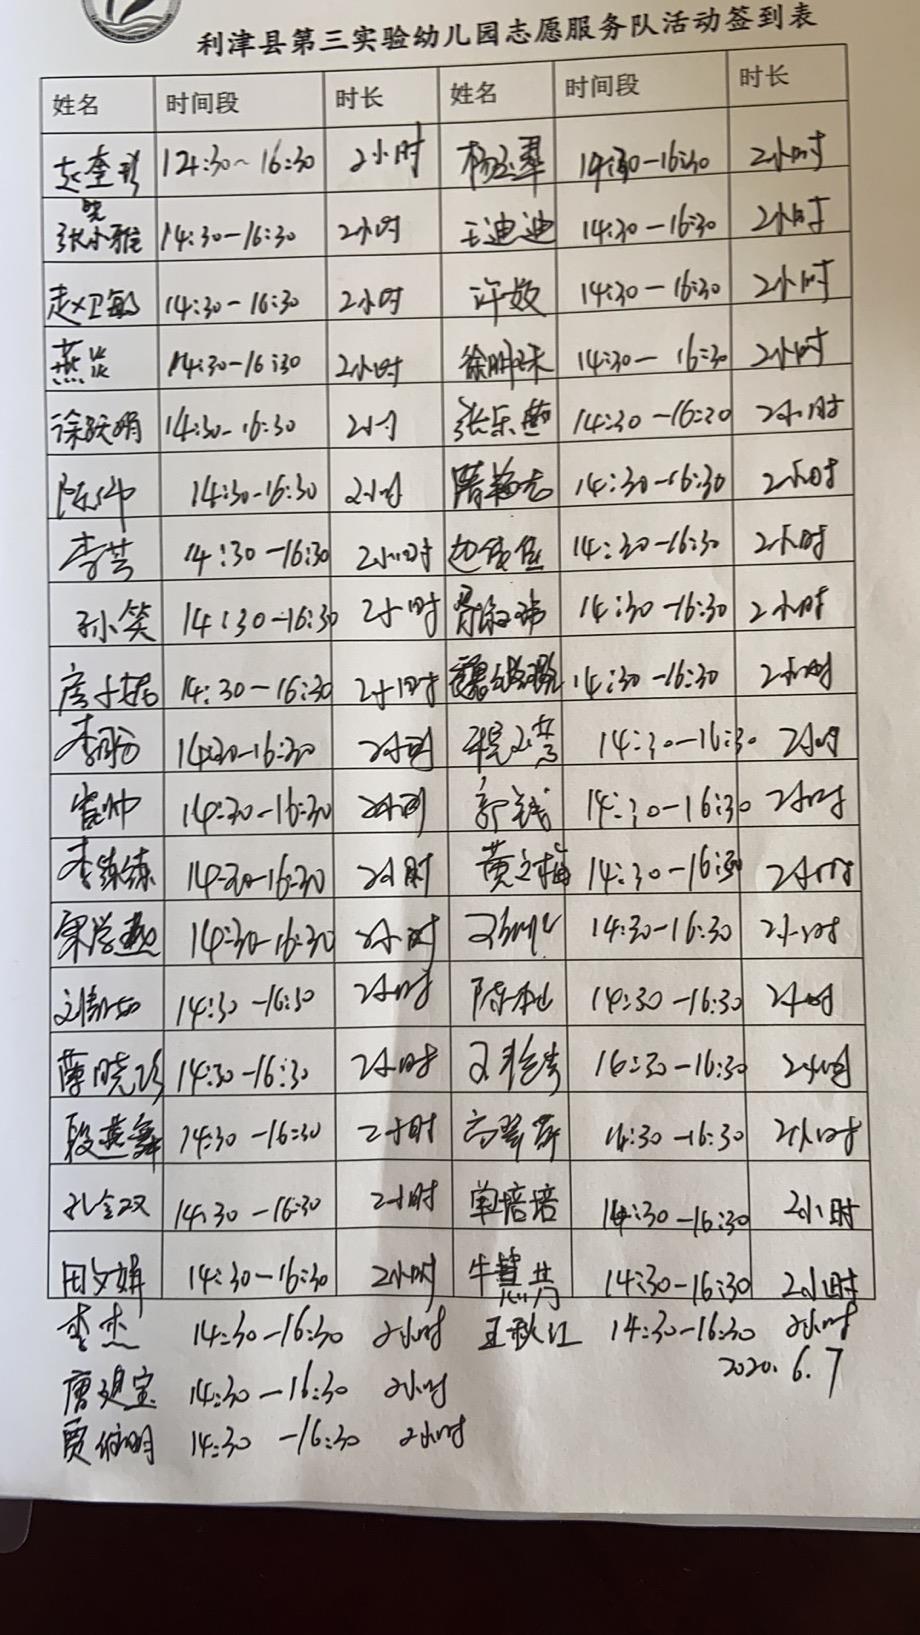 利津县第三实验幼儿园志愿服务队活动签到表
姓名 时间段 时长 姓名 时间段 时长
赵奎彩 124:30~16:30 2小时 杨玉翠 14:30-16:30 2小时
张小雅 14:30-16:30 2小时 王迪迪 14:30-16:30 2小时
赵卫敏 14:30-16:30 2小时 许姣 14:30-16:30 2小时
燕 14:30-16:30 2小时 徐明珠 14:30-16:30 2小时
徐 娟 14:30-16:30 2小 张乐燕 14:30-16:20 2小时
陈帅 14:30-16:30 2小时 隋 14:30-16:30 2小时
李芸 14:30-16:30 2小时 14:30-16:30 2小时
孙笑 14:30-16:30 2小时 14:30-16:30 2小时
14:30-16:30 2小时 魏 14:30-16:30 2小时
李 14:30-16:30 2小时 程文慧 14:30-16:30 2小时
崔帅 14:30-16:30 2小时 郭 14:30-16:30 2小时
李练练 14:30-16:30 2小时 黄立梅 14:30-16:30 2小时
宋学燕 14:30-16:30 2小时 14:30-16:30 2小时
刘 14:30-16:30 2小时 陈 14:30-16:30 2小时
薄晓珍 14:30-16:30 2小时 16:30-16:30 2小时
段燕舞 14:30-16:30 2小时 高翠萍 16:30-16:30 2小时
孔令双 14:30-16:30 2小时 单培培 14:30-16:30 2小时
田文娟 14:30-16:30 2小时 牛慧芳 14:30-16:30 2小时
李杰 14:30-16:30 2小时 王秋江 14:30-16:30 2小时
2020.6.7
唐建宝 14:30-16:30 2小时
贾 明 14:30-16:30 2小时